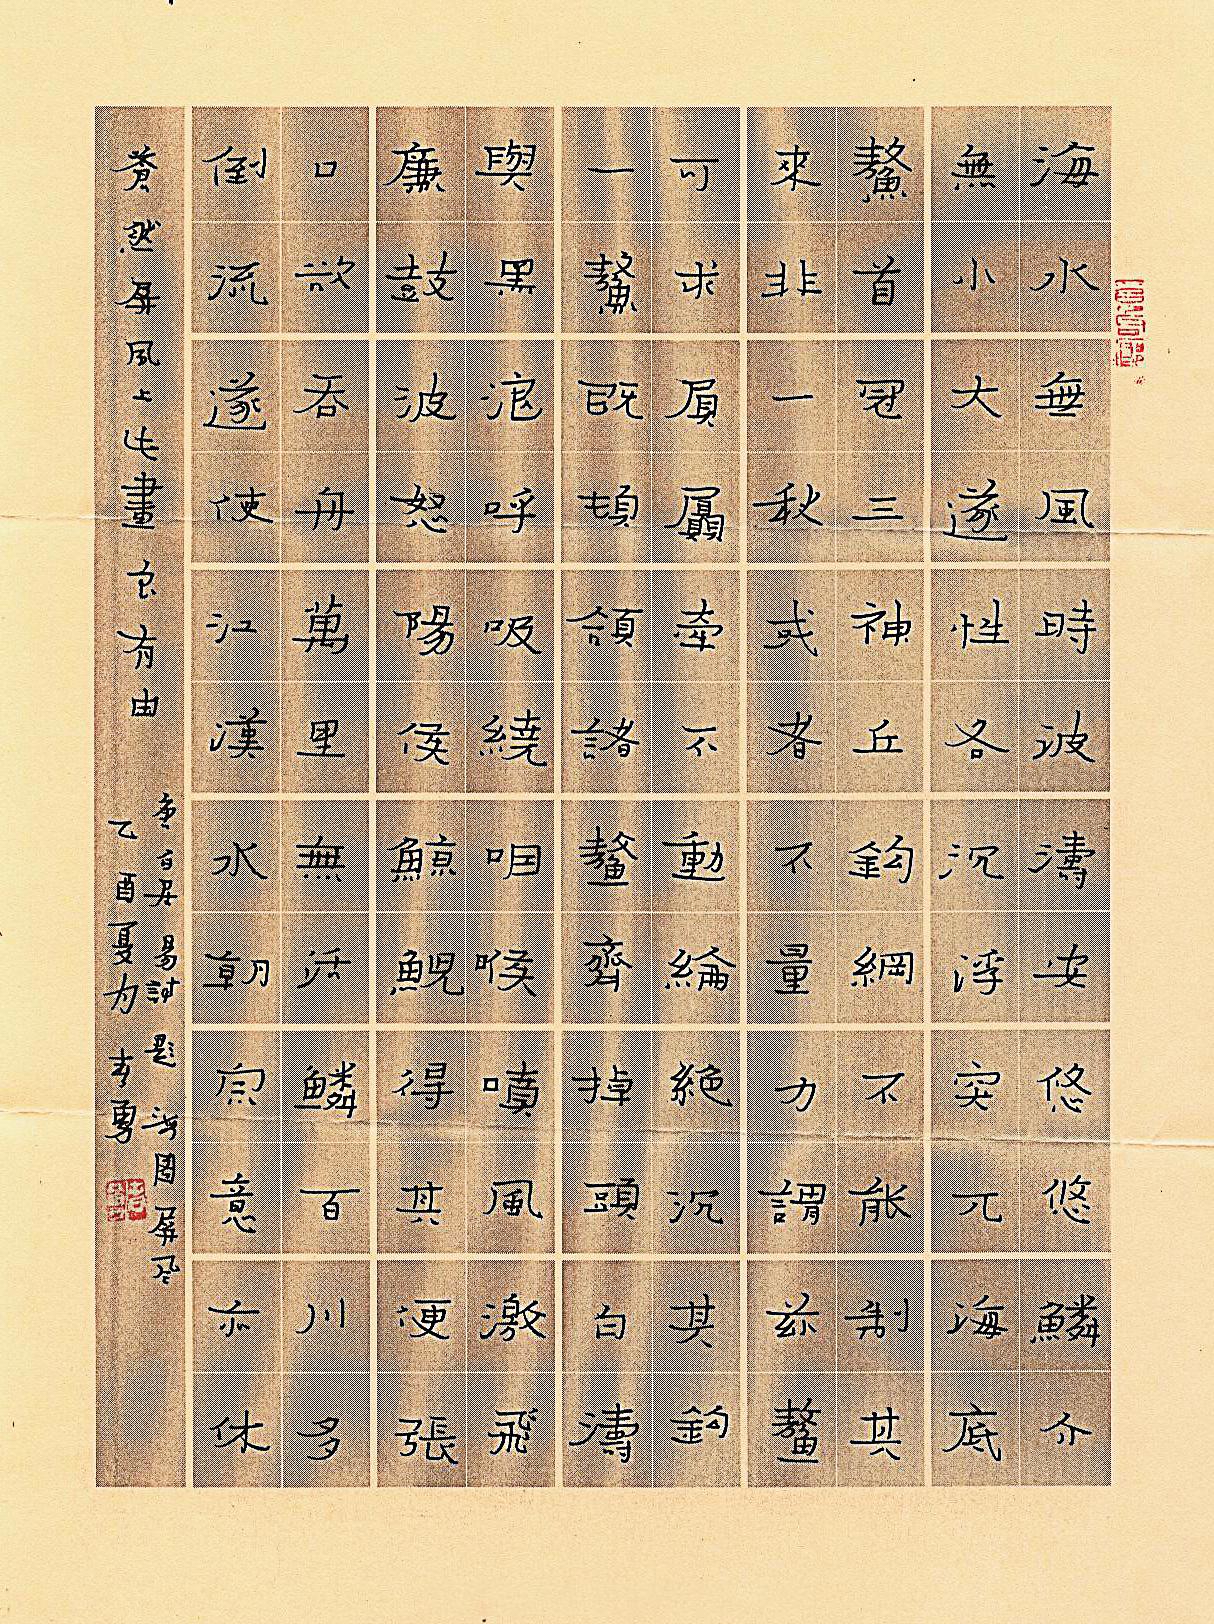 海水無風時波濤安悠悠鱗介
無小大遂性各沉浮突兀海底
鰲首冠三神丘鈎網不能制其
來非一秋或者不量力謂茲鼇
可求屓贔牽不動綸絕沉其鈎
一鰲既頓頷諸鼇齊掉頭白濤
與黑浪呼吸繞咽喉噴風激飛
廉鼓波怒陽侯鯨鯢得其便張
口欲吞舟萬里無活鱗百川多
倒流遂使江漢水朝宗意亦休
蒼然屏風上此畫良有由
唐白居易詩題海圖屏風
乙酉夏为李勇